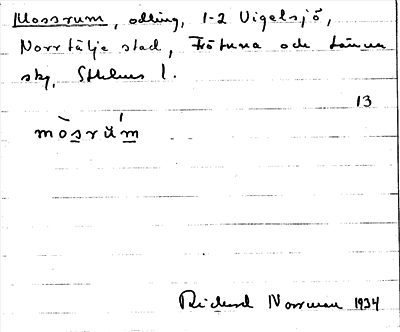 Mossrum, odling, 1-2 Vigelsjö,
Norrtälje stad, Frötuna och Länna
skg, Sthlms l.
13
mòsrúm
Richard Norrman 1934